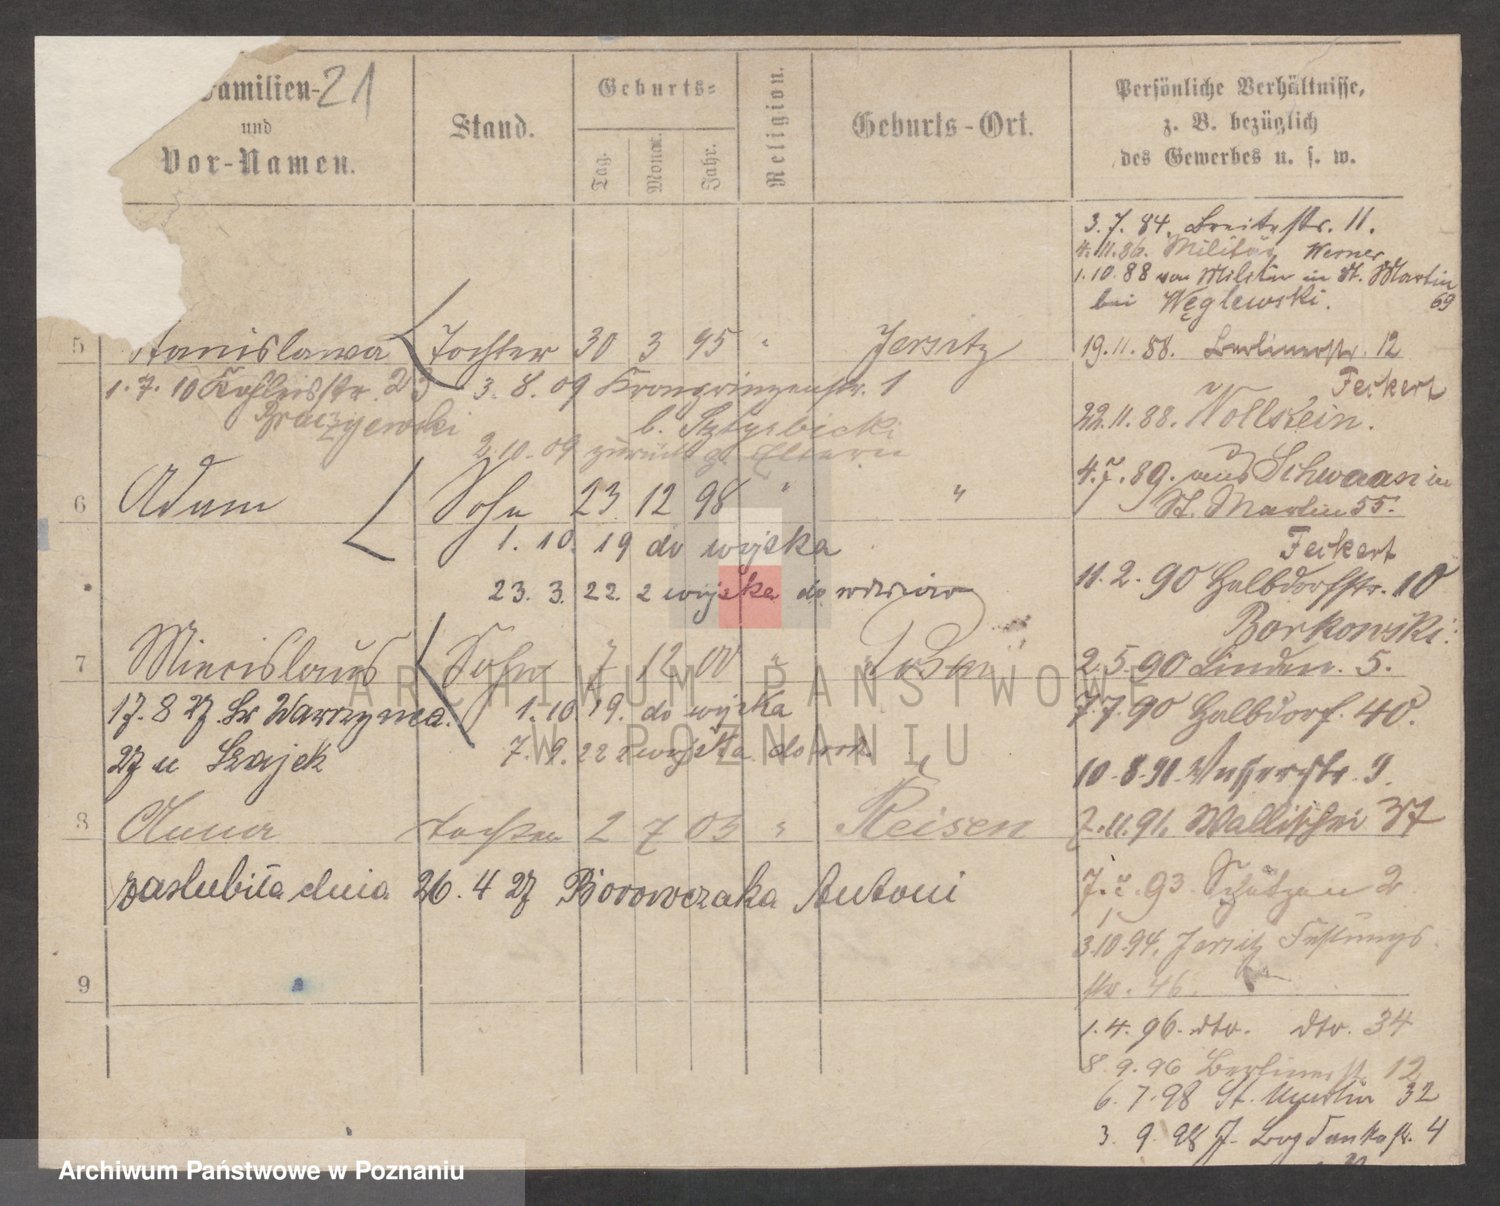 Familien- 21
und
Vor-Namen.
Stand.
Geburts-
Tag.
Monat.
Jahr.
Religion.
Geburts-Ort.
Persönliche Verhältnisse,
z. B. bezüglich
des Gewerbes u. s. w.
3.7.84. Breitestr. 11.
4.11.86. Militär Werner
1.10.88 von Militär in St. Martin 69
bei Węglewski.
5 Stanislawa Tochter 30 3 95 " Jersitz
19.11.88. Berlinerstr. 12
Feikert
1.7.10 23 3.8.09 Kronprinzenstr. 1
22.11.88. Wollstein.
b.
2.10.09 zurück z. Eltern
4.7.89. aus Schwaan in
St. Martin 55.
Feikert
6 Adam Sohn 23 12 98 " "
1. 10. 19 do wojska
23. 3. 22. z wojska do
11.2.90 Halbdorfstr. 10
Borkowski.
7 Miecislaus Sohn 7 12 00 " Posen
2.5.90 Linden. 5.
17.8 27 Sw Wawrzynca
27 u Szajek
1.10 19. do wojska
7.9.22 z wojska do
7.7.90 Halbdorf. 40.
10.8.91. 9.
8 Anna Tochter 2 7 03 " Reisen
7.11.91. Wallischei 37
zaslubiła dnia 26.4 27 Borowczaka Antoni
93. Schützen 2
3.10.94. Jersitz Festungs
str. 46.
9
1.4.96. dto. dto. 34
8.9.96 Berlinerstr. 12
6.7.98 St. Martin 32
3. 9.98 J. Bogdankastr. 4
ARCHIWUM PAŃSTWOWE
W POZNANIU
Archiwum Państwowe w Poznaniu